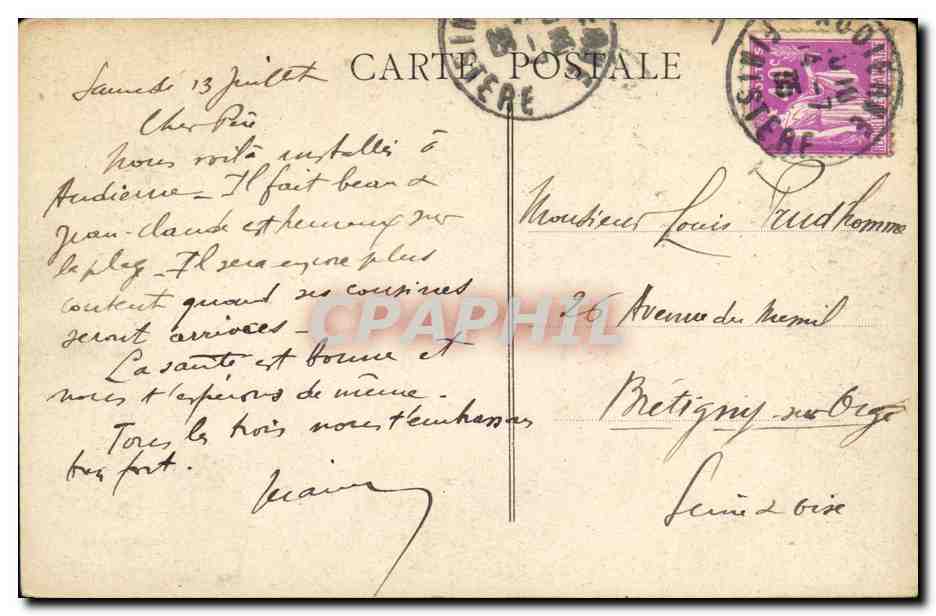 CARTE POSTALE
FINISTERE
FINISTERE
14-7
35
Samedi 13 Juillet
Cher Père
Nous voilà installés à
Audierne - Il fait beau &
Jean-Claude est heureux sur
la plage - Il sera encore plus
content quand ses cousines
seront arrivées -
La santé est bonne et
nous t'espérons de même -
Tous les trois nous t'embrassons
bien fort.
Monsieur Louis Prudhomme
26 Avenue du Mesnil
Brétigny-sur-Orge
Seine & Oise
CPAPHIL